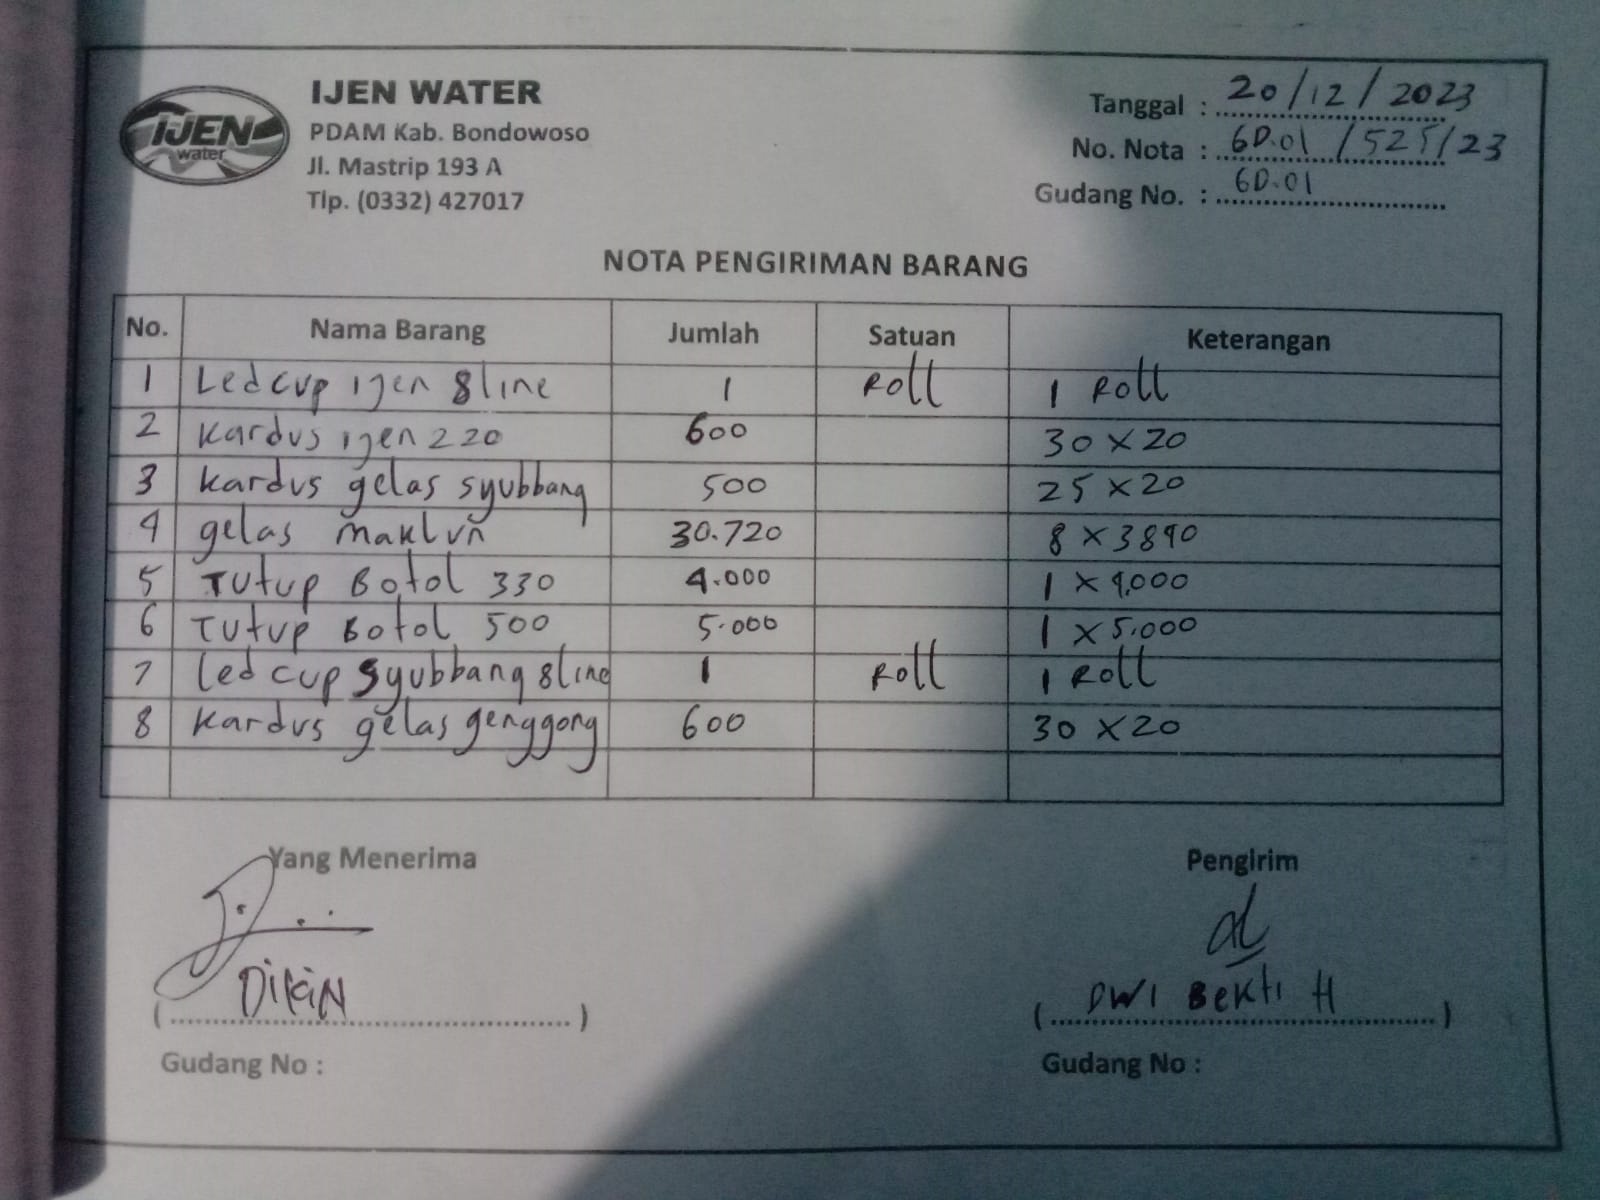 IJEN
water
IJEN WATER
PDAM Kab. Bondowoso
Jl. Mastrip 193 A
Tlp. (0332) 427017
Tanggal : 20/12/2023
No. Nota : GD.01/525/23
Gudang No. : GD.01
NOTA PENGIRIMAN BARANG
No. Nama Barang Jumlah Satuan Keterangan
1 Led cup ijen 8 line 1 Roll 1 Roll
2 Kardus ijen 220 600 30 x 20
3 Kardus gelas syubbang 500 25 x 20
4 gelas Maklun 30.720 8 x 3840
5 Tutup Botol 330 4.000 1 x 4.000
6 Tutup Botol 500 5.000 1 x 5.000
7 Led cup syubbang 8 line 1 Roll 1 Roll
8 Kardus gelas genggong 600 30 x 20
Yang Menerima Pengirim
(DIKIN) (DWI BEKTI H)
Gudang No : Gudang No :